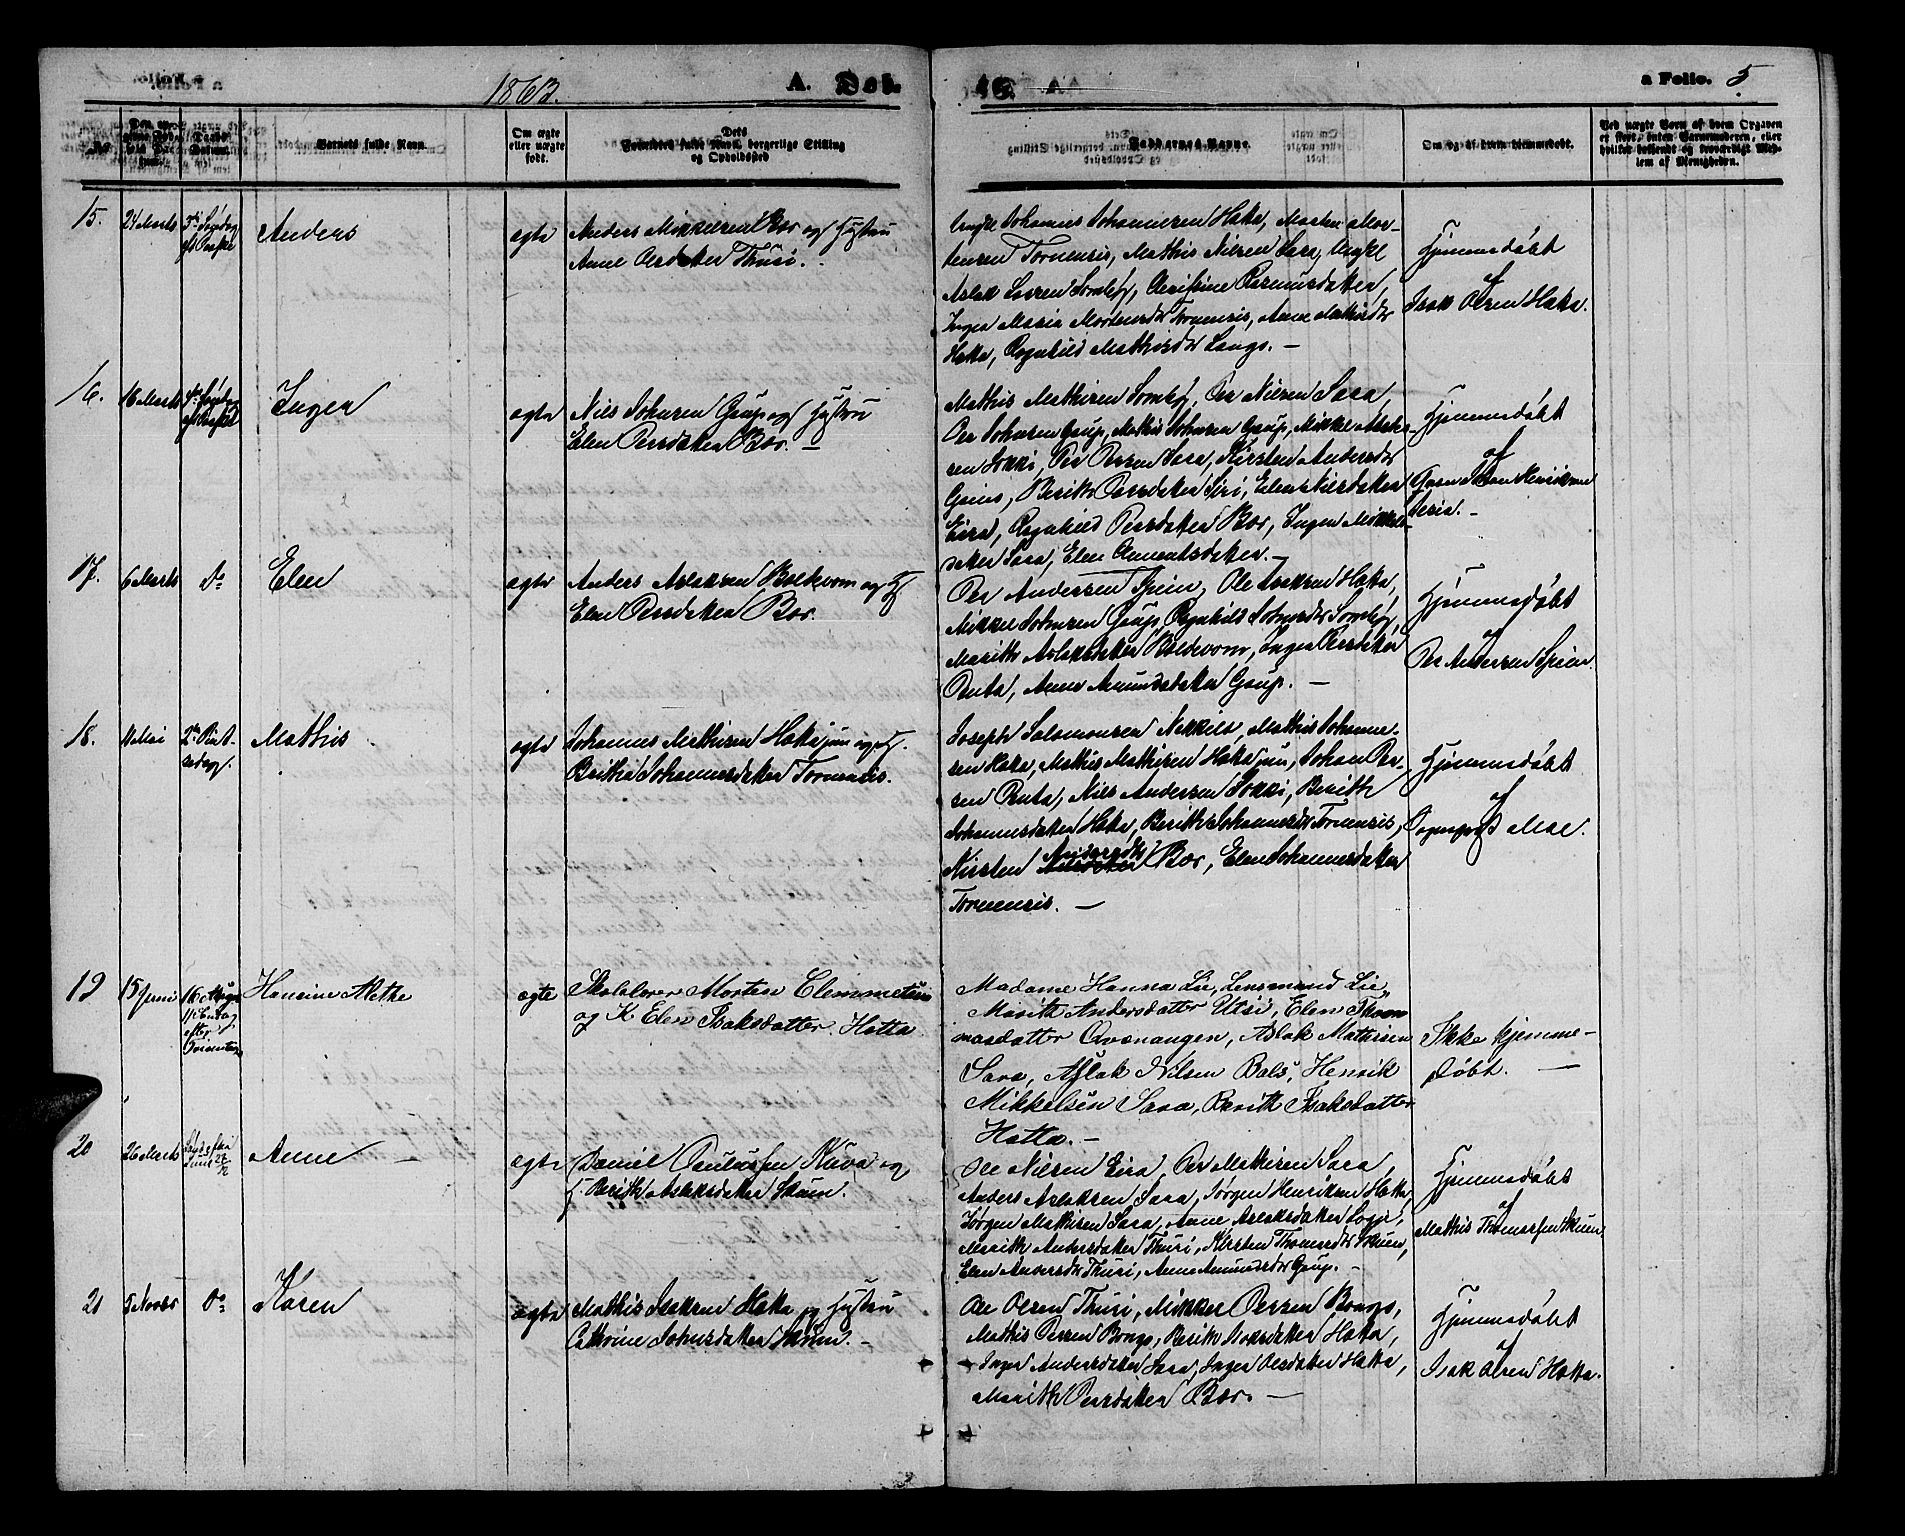 1863.
A. Døb-
te.
a Folio. 5
No.
Daabs-Datum.
Barnets fulde Navn.
Om ægte eller uægte født.
Dets Forældres fulde Navn, borgerlige Stilling og Opholdssted
Faddernes Navne.
Om og af hvem hjemmedøbt.
Ved uægte Børn af hvem Opgaven er skeet, enten Barnmoderen, eller hvilket bekjendt og troværdigt Medlem af Menigheden.
15.
24 Marts
3die Søndag
eft Paaske
Anders
ægte
Anders Mikkelsen Bær og Hustru
Anne Persdatter Thuri.
Johannes Johannesen Hætta, Morten Mor-
tensen Tornensis, Mathis Nilsen Sara,
Aslak Larsen Somby, Rasmusdatter,
Inger Maria Mortensdtr Tornensis, Anne Mathisdtr
Hætta, Ragnhild Mathisdtr Lango. -
Hjemmedøbt
af
Isak Olsen Hætta.
16.
16 Marts
4de Søndag
eft Paaske
Inger
ægte
Nils Johnsen Gaup og Hustru
Elen Persdatter Bær. -
Mathis Mathisen Somby, Per Nilsen Sara,
Per Johnsen Gaup, Mathis Johnsen Gaup, Mikkel Aslak-
sen Sokki, Per Persen Sara, Kirsten Andersdtr
Gaino, Berith Persdatter Siri, Elen Nilsdatter
Eira, Ragnhild Persdatter Bær, Inger Mikkels-
datter Sara, Elen Clementsdatter. -
Hjemmedøbt
af
17.
6 Marts
Do
Elen
ægte
Anders Aslaksen Boldevom og H
Elen Persdatter Bær.
Per Andersen Spein, Ole Isaksen Hætta,
Mikkel Johnsen Gaup, Ragnhild Johnsdtr Somby,
Marith Aslaksdatter Boldevom, Inger Persdatter
Ruta, Anne Amundsdatter Gaup. -
Hjemmedøbt
af
Per Andersen Spein.
18.
11 Mai
2den Pint-
sedag.
Mathis
ægte
Johannes Mathisen Hætta jun og H.
Beritha Johannesdatter Tornensis.
Joseph Salomonsen Nikkila, Mathis Johanne-
sen Hætta, Mathis Mathisen Hætta jun, Johan Per-
sen Ruta, Nils Andersen Sokki, Berith
Johannesdatter Hætta, Berith Johannesdtr Tornensis,
Kirsten Andersdtr Bær, Elen Johannesdatter
Tornensis. -
Hjemmedøbt
af
Sognepræst Moe.
19
15 Juni
16 August
11 Søndag
efter
Trinitatis
Hansine Methe
ægte
Skolelærer Morten Clemmetsen
og K. Elen Isaksdatter Hætta
Madame Hanna Lie, Lensmand Lie,
Marith Andersdatter Utsi, Elen Thom-
masdatter Qvænangen, Aslak Mathisen
Sara, Aslak Nilsen Bals, Henrik
Mikkelsen Sara, Berith Isaksdatter
Hætta. -
Ikke hjemme-
døbt. -
20
26 Marts
Anne -
ægte
Daniel Paulussen Kuva og
H. Berith Aslaksdatter Skum.
Ole Nilsen Eira, Per Mathisen Sara,
Anders Aslaksen Sara, Jørgen Henriksen Hætta,
Jørgen Mathisen Sara, Anne Aslaksdatter Logje,
Marith Andersdatter Thuri, Kirsten Thomasdtr Skum,
Elen Andersdtr Thuri, Anne Amundsdtr Gaup. -
Hjemmedøbt
af
Mathis Thomassen Skum
21
5 Novbr
Do
Karen
ægte
Mathis Isaksen Hætta og Hustru
Cathrine Johnsdatter Skum. -
Ole Olsen Thuri, Mikkel Persen Bongo,
Mathis Persen Bongo, Berith Isaksdatter Hætta,
Inger Andersdatter Sara, Inger Persdatter Hætta,
Marith Persdatter Bær. -
Hjemmedøbt
af
Isak Olsen Hætta.